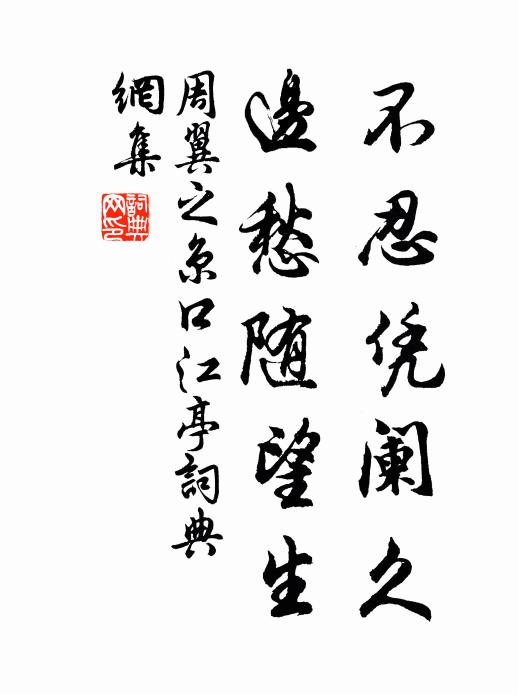 不忍凭阑久
邊愁随望生
周翼之京口江亭詞典
網集
詞典
网印